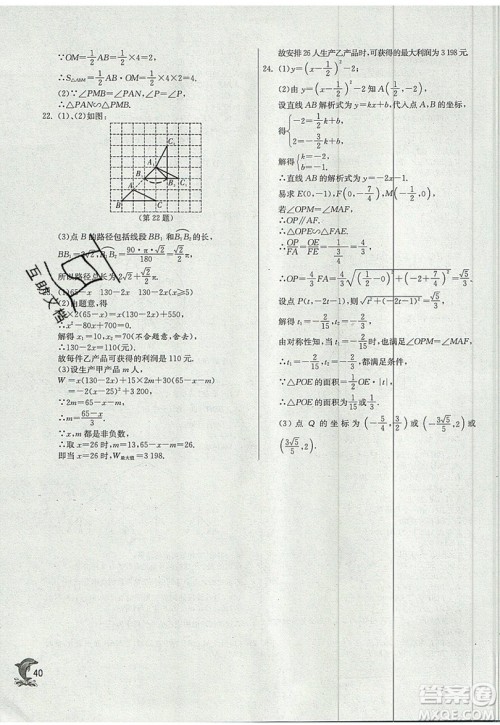 ∵OM=1/2 AB=1/2×4=2,
∴S△ABM=1/2 AB·OM=1/2×4×2=4.
(2)∵∠PMB=∠PAN,∠P=∠P,
∴△PAN∽△PMB.
22. (1)、(2)如图:
C₁
A₁
B₁
C₂
A
B
C
(第22题)
(3)点B的路径包括线段BB₁和B₁B₂的长,
BB₁=2√2,B₁B₂=90·π·√2/180=√2/2 π.
所以路径总长为2√2+√2/2 π.
23. (1)65-x 130-2x 130-2x(x≥5)
(2)由题意,得
15×2(65-x)=x(130-2x)+550.
∴x²-80x+700=0.
解得x₁=10,x₂=70(不合题意,舍去),
∴130-2x=110.
故每件乙产品可获得的利润是110元.
(3)设生产甲产品m人,
W=x(130-2x)+15×2m+30(65-x-m)
=-2(x-25)²+3200,
∵2m=65-x-m,
∴m=(65-x)/3.
∵x,m都是非负数,
∴取x=26时,m=13,65-x-m=26.
即当x=26时,W最大值=3198.
故安排26人生产乙产品时,可获得的最大利润为3198元.
24. (1)y=(x-1/2)²-2;
(2)由y=(x-1/2)²-2,得A(1/2,-2).
设直线AB解析式为y=kx+b,代入点A,B的坐标,
得{-2=1/2 k+b,
0=-1/2 k+b,
解得{k=-2,
b=-1.
∴直线AB的解析式为y=-2x-1.
易求E(0,-1),F(0,-7/4),M(-1/2,0).
若∠OPM=∠MAF,
∴OP∥AF.
∴△OPE∽△FAE.
∴OP/FA=OE/FE=1/(3/4)=4/3.
∴OP=4/3 FA=4/3√((1/2-0)²+(-2+7/4)²)=√5/3.
设点P(t,-2t-1),则√(t²+(-2t-1)²)=√5/3.
解得t₁=-2/15,t₂=-2/3.
由对称性知,当t₁=-2/15时,
也满足∠OPM=∠MAF,
∴t₁=-2/15,t₂=-2/3,都满足条件.
∵△POE的面积=1/2 OE·|t|,
∴△POE的面积为1/15或1/3.
(3)点Q的坐标为(-5/4,3/2)或(-3√5/5,2)或(3√5/5,2).
40
互助文档
答案圈
MXQE.COM